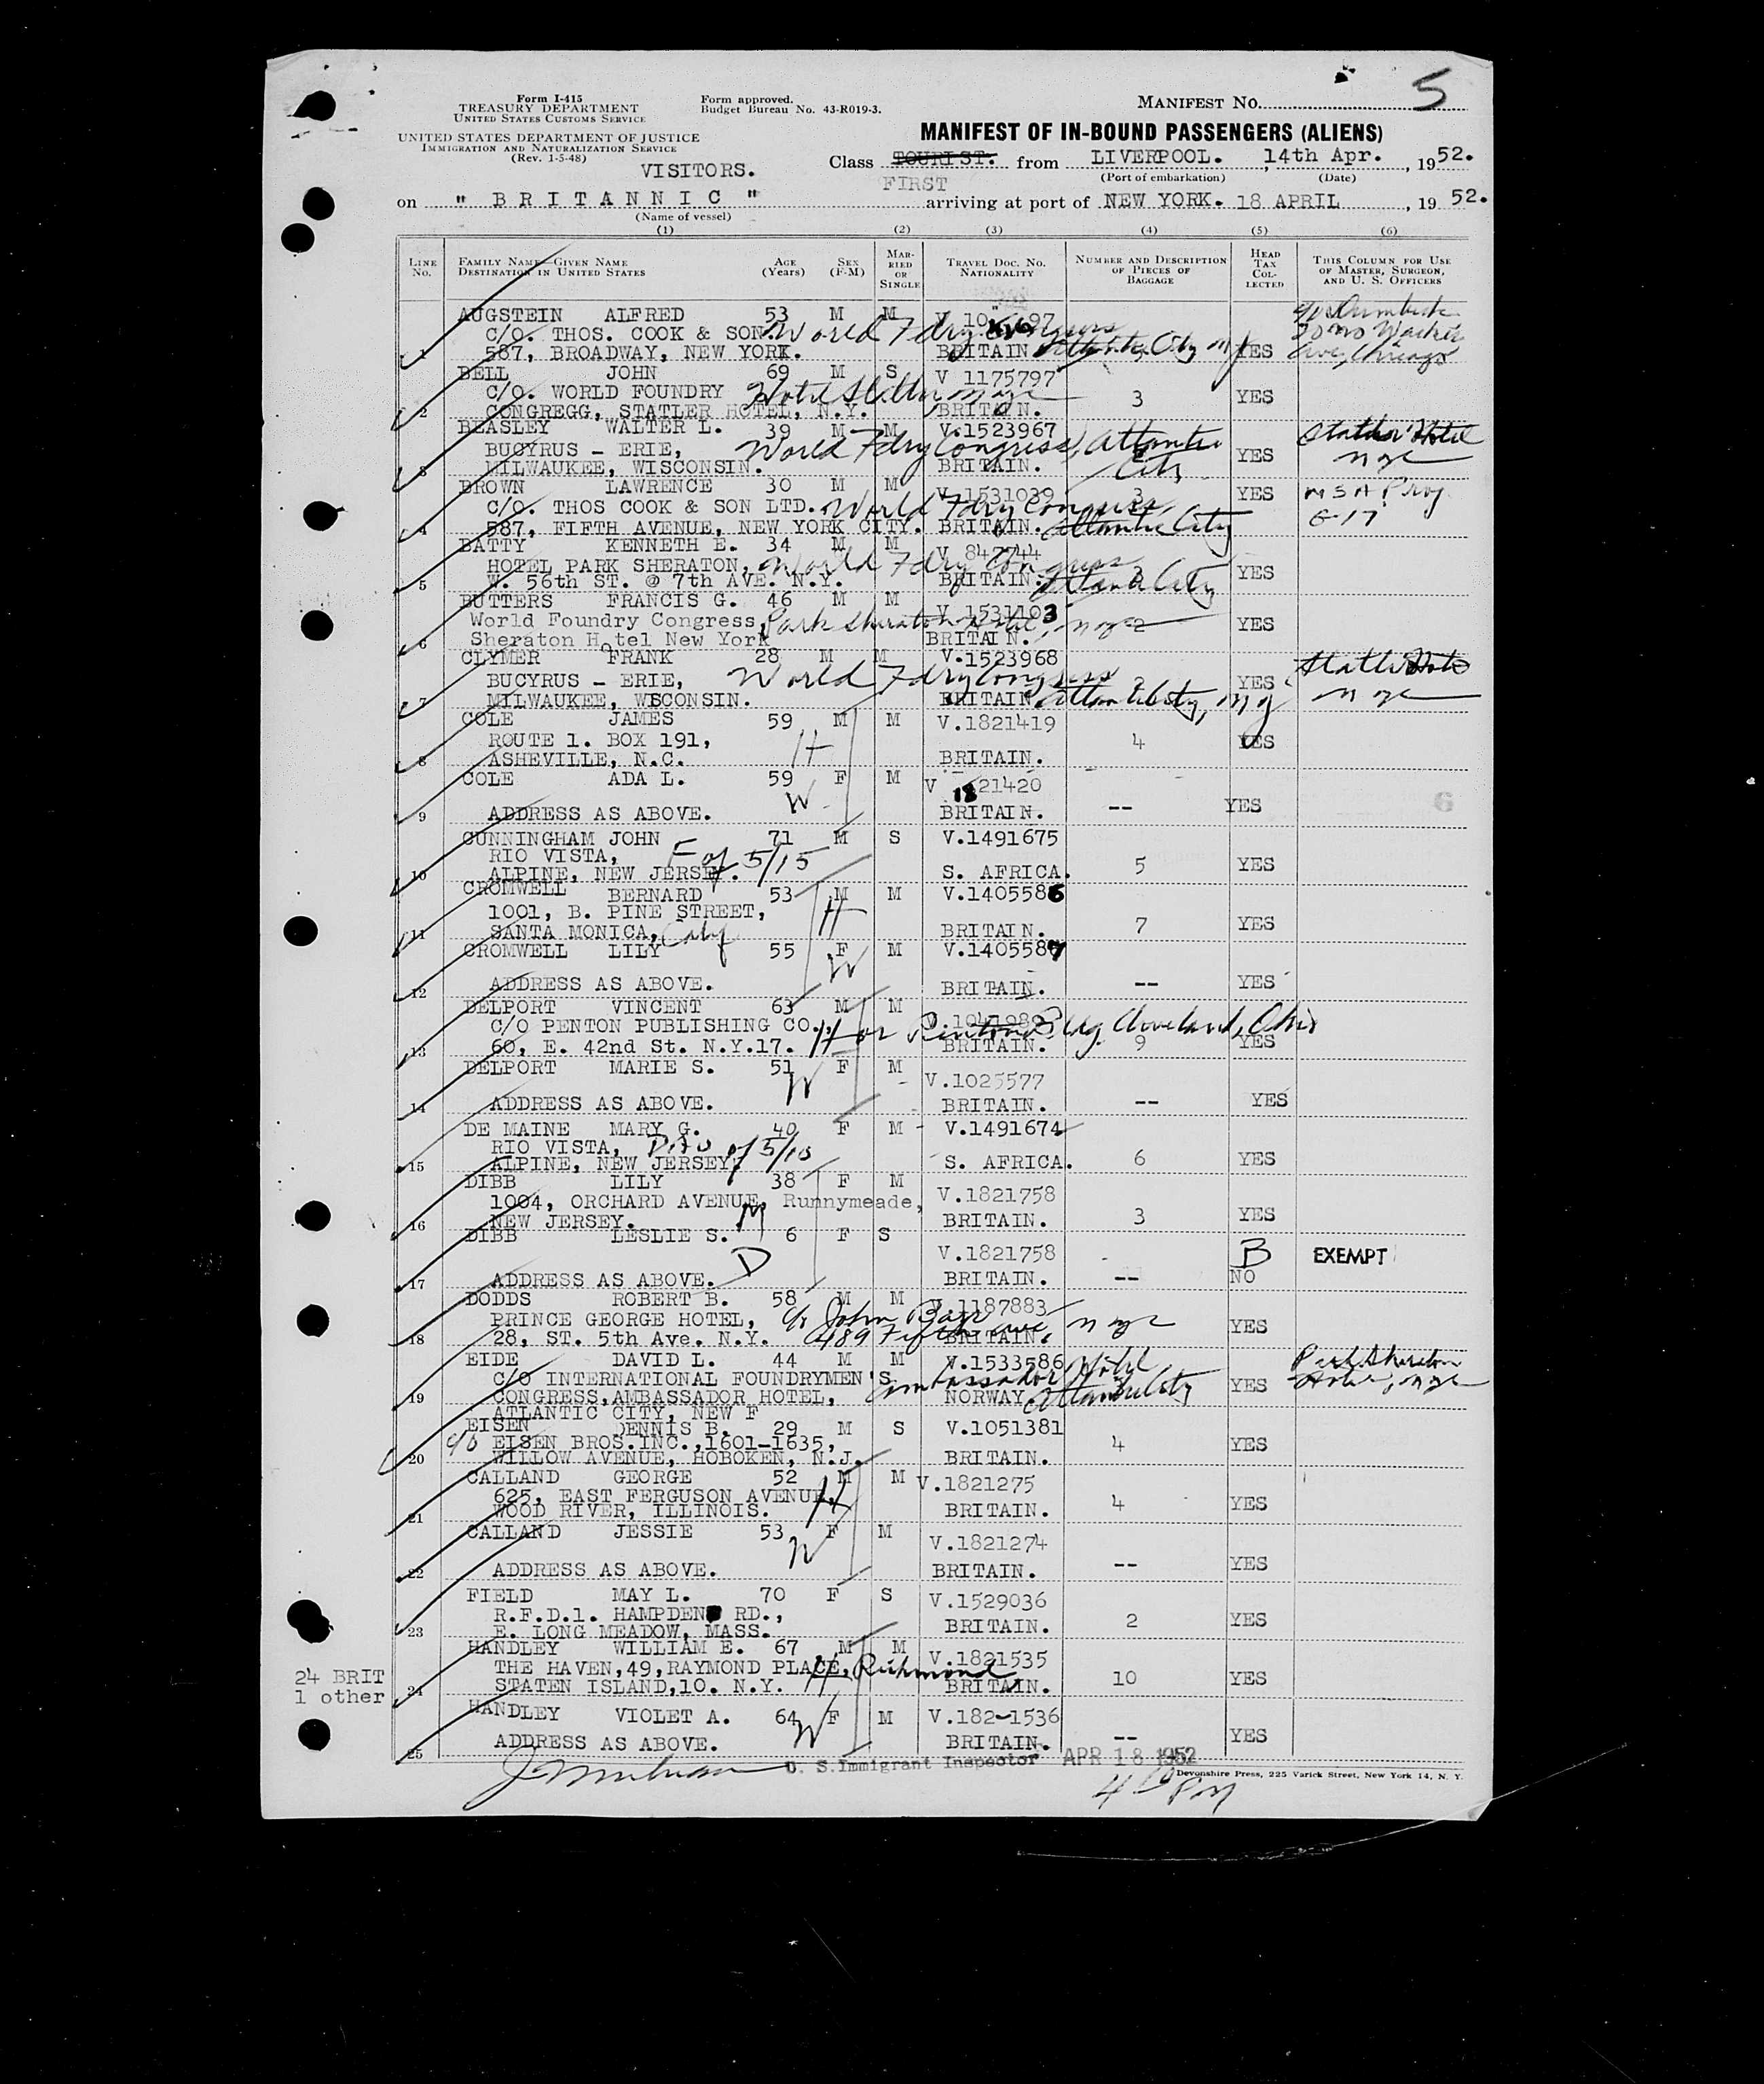 5
Form I-415
TREASURY DEPARTMENT
UNITED STATES CUSTOMS SERVICE
Form approved.
Budget Bureau No. 43-R019-3.
MANIFEST No.
UNITED STATES DEPARTMENT OF JUSTICE
IMMIGRATION AND NATURALIZATION SERVICE
(Rev. 1-5-48)
MANIFEST OF IN-BOUND PASSENGERS (ALIENS)
VISITORS.
Class TOURIST. from LIVERPOOL. , 14th Apr. , 1952.
FIRST (Port of embarkation) (Date)
on " BRITANNIC " arriving at port of NEW YORK. 18 APRIL , 1952.
(Name of vessel)
(1) (2) (3) (4) (5) (6)
LINE No.
FAMILY NAME—GIVEN NAME
DESTINATION IN UNITED STATES
AGE (Years)
SEX (F-M)
MARRIED OR SINGLE
TRAVEL DOC. NO. NATIONALITY
NUMBER AND DESCRIPTION OF PIECES OF BAGGAGE
HEAD TAX COLLECTED
THIS COLUMN FOR USE OF MASTER, SURGEON, AND U. S. OFFICERS
AUGSTEIN ALFRED 53 M M
C/O. THOS. COOK & SON. World Fdry Congress
1 587, BROADWAY, NEW YORK. BRITAIN Atlantic City NJ YES Ave, Chicago
BELL JOHN 69 M S V 1175797
C/O. WORLD FOUNDRY Hotel Statler nyc 3 YES
2 CONGREGG, STATLER HOTEL, N.Y. BRITAIN.
BEASLEY WALTER L. 39 M M V.1523967 Statler Hotel
BUCYRUS - ERIE, World Fdry Congress, Atlantic City YES nyc
3 MILWAUKEE, WISCONSIN. BRITAIN.
BROWN LAWRENCE 30 M M V 1531039 3 YES MSA Prog
C/O. THOS COOK & SON LTD. World Fdry Congress G-17
4 587, FIFTH AVENUE, NEW YORK CITY. BRITAIN. Atlantic City
BATTY KENNETH E. 34 M M V 847744
HOTEL PARK SHERATON, World Fdry Congress YES
5 W. 56th ST. @ 7th AVE. N.Y. BRITAIN. Atlantic City
BUTTERS FRANCIS G. 46 M M V 1531103
World Foundry Congress, Park Sheraton Hotel, nyc 2 YES
6 Sheraton Hotel New York BRITAIN.
CLYMER FRANK 28 M M V.1523968 Statler Hotel
BUCYRUS - ERIE, World Fdry Congress YES nyc
7 MILWAUKEE, WISCONSIN. BRITAIN Atlantic City, NJ
COLE JAMES 59 M M V.1821419
ROUTE 1. BOX 191, H 4 YES
8 ASHEVILLE, N.C. BRITAIN.
COLE ADA L. 59 F M V 1821420
W
9 ADDRESS AS ABOVE. BRITAIN. -- YES
6
CUNNINGHAM JOHN 71 M S V.1491675
RIO VISTA, F of 5/15 5 YES
10 ALPINE, NEW JERSEY. S. AFRICA.
CROMWELL BERNARD 53 M M V.1405586
1001, B. PINE STREET, H 7 YES
11 SANTA MONICA, Calif BRITAIN.
CROMWELL LILY 55 F M V.1405587
W
12 ADDRESS AS ABOVE. BRITAIN. -- YES
DELPORT VINCENT 63 M M
C/O PENTON PUBLISHING CO., H or Penton Bldg. Cleveland, Ohio
13 60, E. 42nd St. N.Y.17. BRITAIN. 9 YES
DELPORT MARIE S. 51 F M V.1025577
W
14 ADDRESS AS ABOVE. BRITAIN. -- YES
DE MAINE MARY G. 40 F M V.1491674
RIO VISTA, of 5/10
15 ALPINE, NEW JERSEY, S. AFRICA. 6 YES
DIBB LILY 38 F M V.1821758
1004, ORCHARD AVENUE, Runnymeade,
16 NEW JERSEY. M BRITAIN. 3 YES
DIBB LESLIE S. 6 F S V.1821758 B EXEMPT
D
17 ADDRESS AS ABOVE. BRITAIN. -- NO
DODDS ROBERT B. 58 M M 1187883
PRINCE GEORGE HOTEL, c/o John Barr nyc YES
18 28, ST. 5th Ave. N.Y. 489 Fifth ave, BRITAIN.
EIDE DAVID L. 44 M M V.1533586 Park Sheraton
C/O INTERNATIONAL FOUNDRYMEN'S Ambassador Hotel Hotel, nyc
19 CONGRESS, AMBASSADOR HOTEL, NORWAY Atlantic City YES
ATLANTIC CITY, NEW F
EISEN DENNIS B. 29 M S V.1051381
c/o EISEN BROS.INC.,1601-1635, 4 YES
20 WILLOW AVENUE, HOBOKEN, N.J. BRITAIN.
CALLAND GEORGE 52 M M V.1821275
625, EAST FERGUSON AVENUE, H 4 YES
21 WOOD RIVER, ILLINOIS. BRITAIN.
CALLAND JESSIE 53 F M V.1821274
W
22 ADDRESS AS ABOVE. BRITAIN. -- YES
FIELD MAY L. 70 F S V.1529036
R.F.D.1. HAMPDEN RD., 2 YES
23 E. LONG MEADOW, MASS. BRITAIN.
HANDLEY WILLIAM E. 67 M M V.1821535
24 BRIT
1 other
THE HAVEN,49,RAYMOND PLACE, H Richmond 10 YES
24 STATEN ISLAND,10. N.Y. BRITAIN.
HANDLEY VIOLET A. 64 F M V.182-1536
W
25 ADDRESS AS ABOVE. BRITAIN. -- YES
U. S. Immigrant Inspector APR 18 1952
Devonshire Press, 225 Varick Street, New York 14, N. Y.
4 10 PM